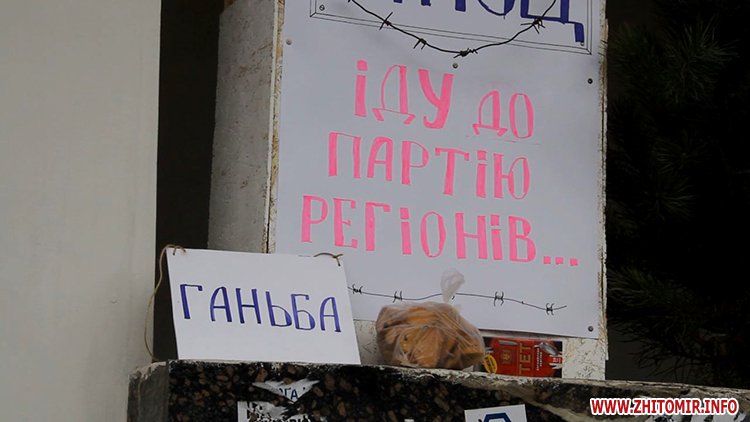 іДУ ДО
ПАРТіЮ
РЕГіОНіВ...
ГАНЬБА
ТЕТ
WWW.ZHITOMIR.INFO